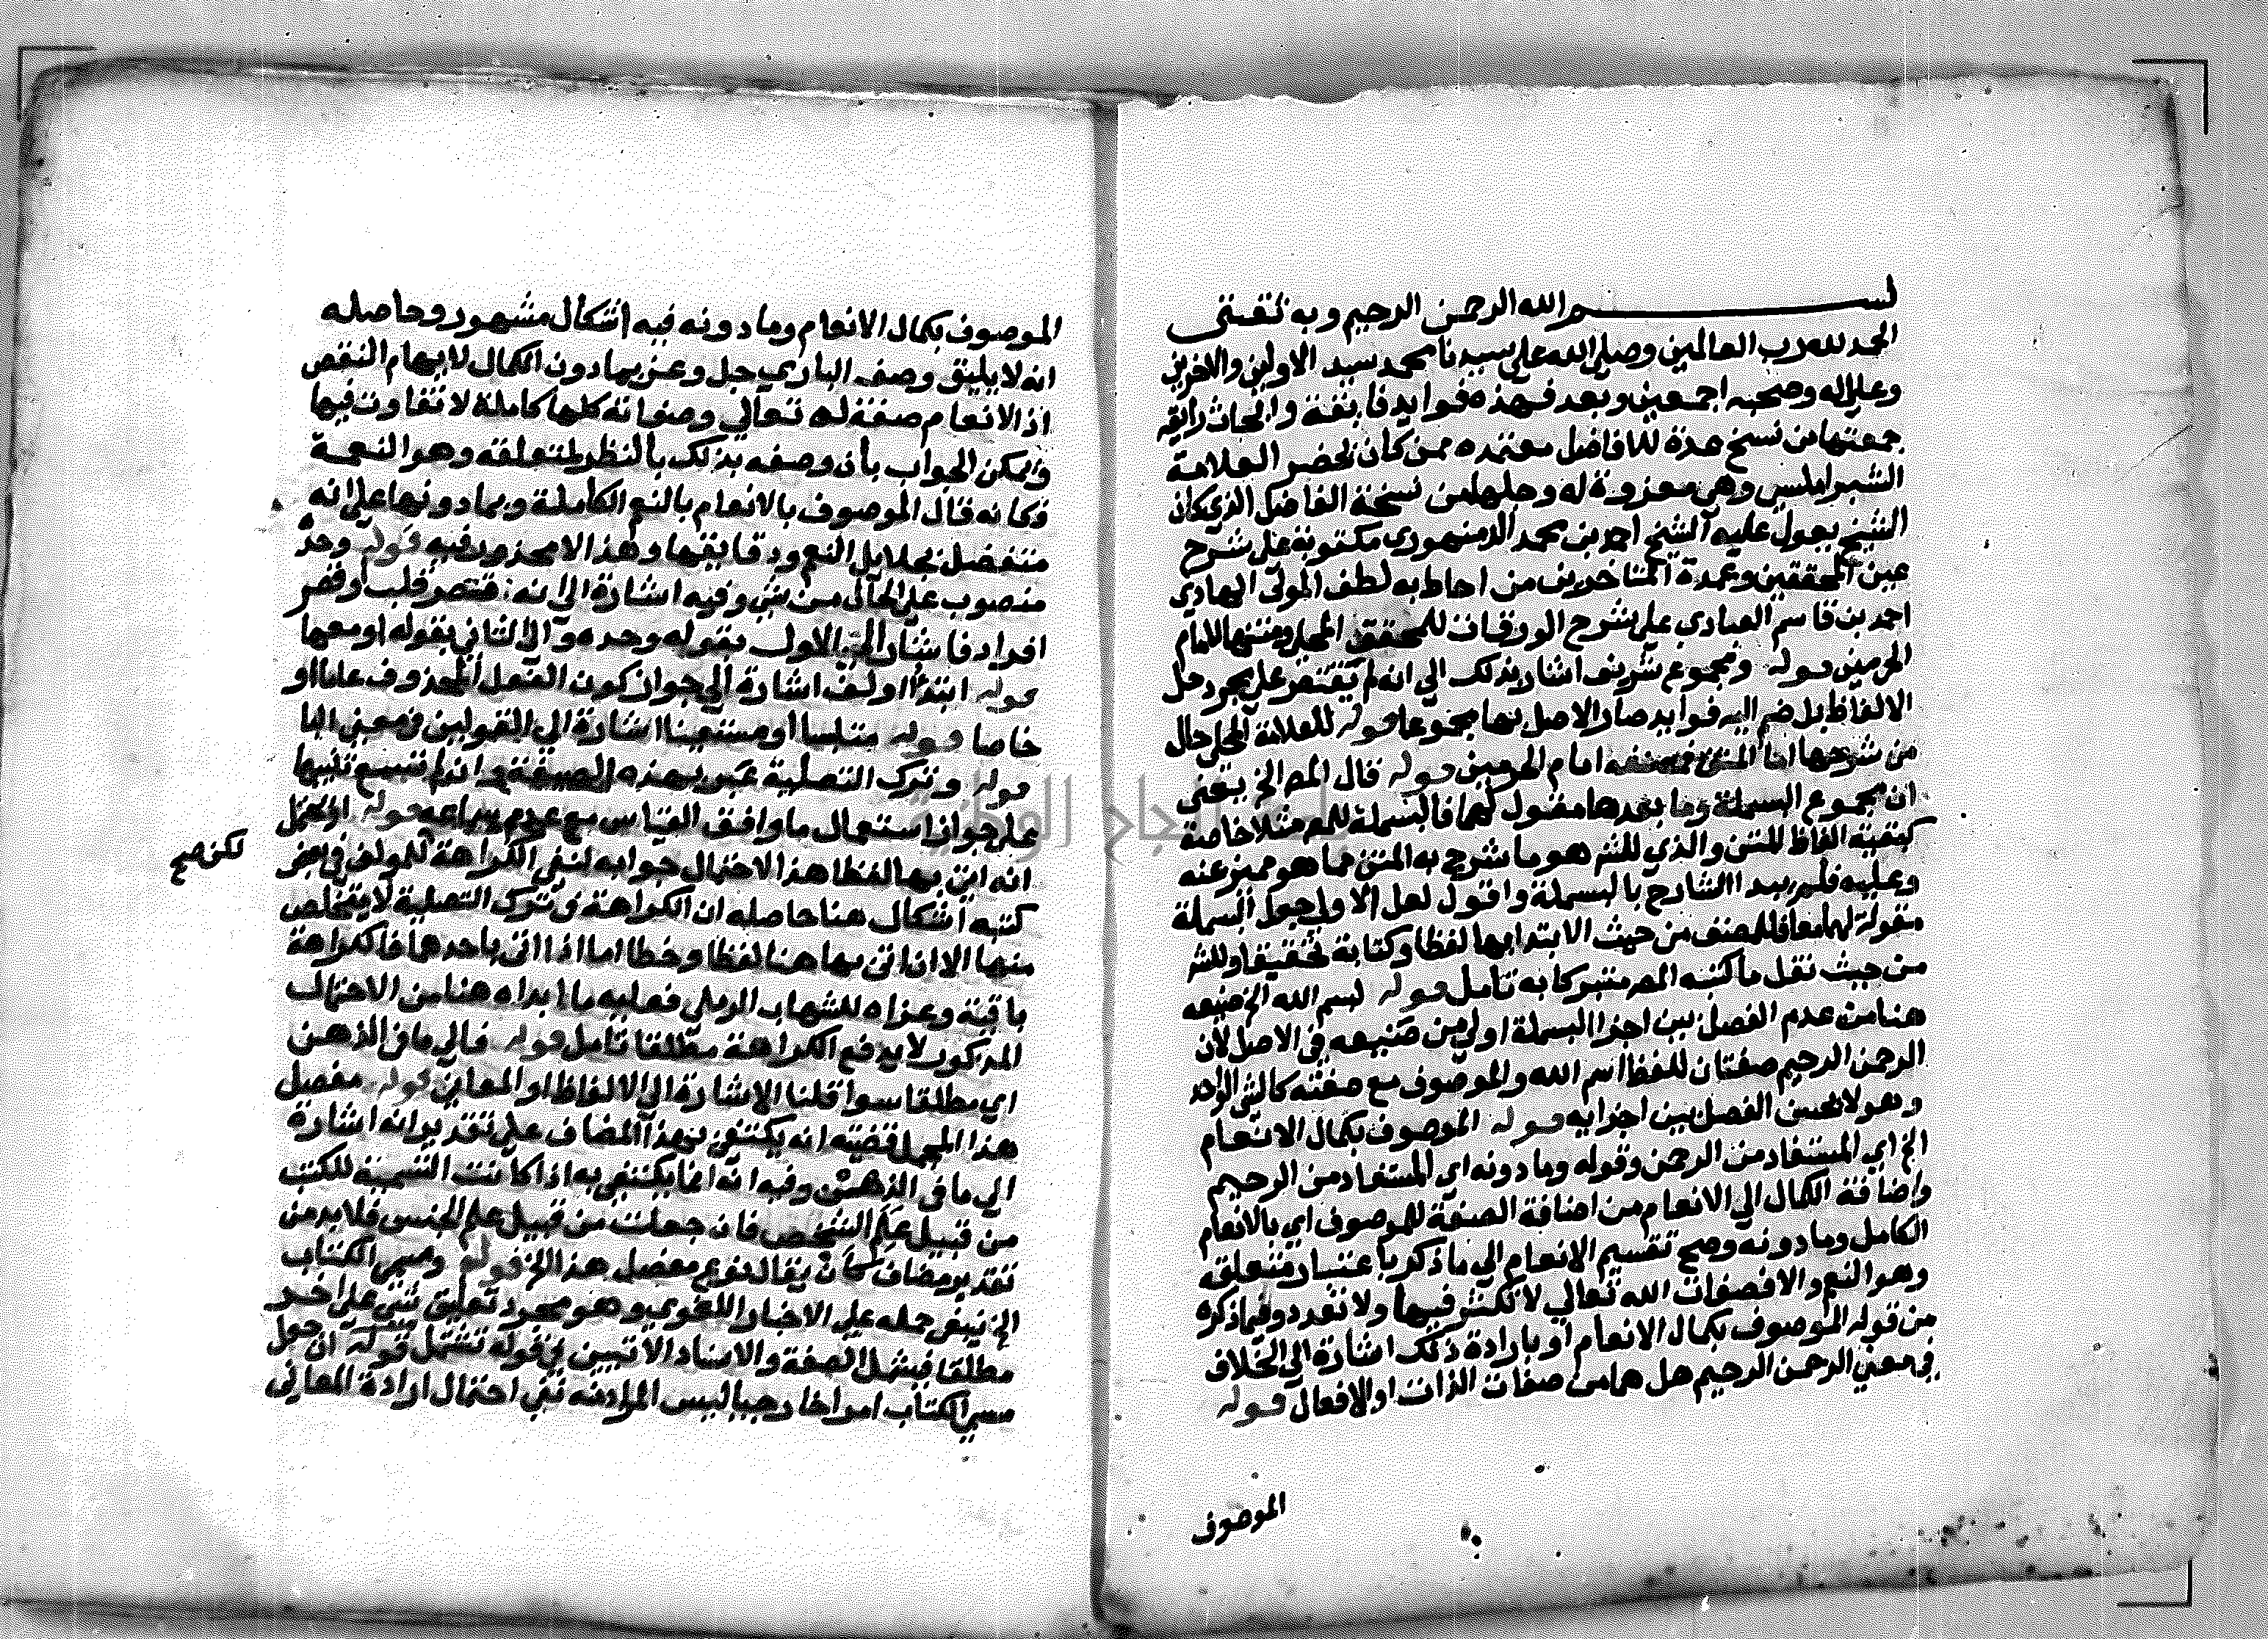 بسم الله الرحمن الرحيم وبه ثقتي
الحمد لله رب العالمين وصلى الله على سيدنا محمد سيد الاولين والاخرين
وعلى اله وصحبه اجمعين وبعد فهذه فوايد فايقة وابحاث رايقه
جمعتها من نسخ عدة للافاضل معتمده ممن كان يحضر العلامة
الشبراملسي وهي معزوة له وجلها من نسخة الفاضل الذي كان
الشيخ يعول عليه الشيخ احمد بن محمد الدمنهوري مكتوبة على شرح
عين المحققين وعمدة المتاخرين من احاط به لطف المولى الهادي
احمد بن قاسم العبادي على شرح الورقات للمحقق المحلي ومتنها لامام
الحرمين قوله ومجموع شريف اشار بذلك الى انه لم يقتصر على مجرد حل
الالفاظ بل ضم اليه فوايد صار الاصل بها مجموعا قوله للعلامة المحلي حال
من شرحها اما المتن فمصنفه امام الحرمين قوله قال المص الخ يعني
ان مجموع البسملة وما بعدها مقول لهما فالبسملة للمص مثلا خاصة
كبقية الفاظ المتن والذي للش هو ما شرح به المتن مما هو مميز عنه
وعليه فلم يبد الشارح بالبسملة واقول لعل الاولى جعل البسملة
مقولة لهما معا فللمصنف من حيث الابتدا بها لفظا وكتابة تحقيقا وللش
من حيث نقل ما كتبه المص متبركا به تامل قوله بسم الله الخ صنيعه
هنا من عدم الفصل بين اجزا البسملة اولى من صنيعه في الاصل لان
الرحمن الرحيم صفتان للفظ اسم الله والموصوف مع صفته كالشي الواحد
وهو لا يحسن الفصل بين اجزايه قوله الموصوف بكمال الانعام
الخ اي المستفاد من الرحمن وقوله وما دونه اي المستفاد من الرحيم
واضافة الكمال الى الانعام من اضافة الصفة للموصوف اي بالانعام
الكامل وما دونه وصح تقسيم الانعام الى ما ذكر باعتبار متعلقه
وهو النعم والا فصفات الله تعالى لا تكثر فيها ولا تعدد وفيما ذكره
من قوله الموصوف بكمال الانعام او بارادة ذلك اشارة الى الخلاف
في معنى الرحمن الرحيم هل هما من صفات الذات او الافعال قوله
الموصوف
الموصوف بكمال الانعام وما دونه فيه اشكال مشهور وحاصله
انه لا يليق وصف الباري جل وعز بما دون الكمال لايهام النقص
اذ الانعام صفة له تعالى وصفاته كلها كاملة لا تفاوت فيها
ويمكن الجواب بأن وصفه بذلك بالنظر لمتعلقه وهو النعمة
فكانه قال الموصوف بالانعام بالنعم الكاملة وبما دونها على انه
متفضل بجلايل النعم ودقايقها وهذا لا محذور فيه قوله وحده
منصوب على الحال من شي وفيه اشارة الى انه قصر قلب او قصر
افراد فاشار الى الاول بقوله وحده والى الثاني بقوله او معها
قوله ابتدأ او اؤلف اشارة الى جواز كون الفعل المحذوف عاما او
خاصا قوله متلبسا او مستعينا اشارة الى القولين في معنى البا
قوله وترك التصلية عبر بهذه الصيغة وان لم تسمع تنبيها
على جواز استعمال ما وافق القياس مع عدم سماعه قوله او يحتمل
انه اتى بها لفظا هذا الاحتمال جوابه لنفي الكراهة للمؤلف في بعض
لكن صح
كتبه اشكال هنا حاصله ان الكراهة في ترك التصلية لا يتخلص
منها الا ان اتى بها هنا لفظا وخطا اما اذا اتى باحدهما فالكراهة
باقية وعزاه للشهاب الرملي فعليه ما ابداه هنا من الاحتمال
المذكور لا يدفع الكراهة مطلقا تامل قوله فالى ما في الذهن
اي مطلقا سوا قلنا الاشارة الى الالفاظ او المعاني قوله مفصل
هذا المجمل قضيته انه يكتفى بهذا المضاف على تقدير انه اشارة
الى ما في الذهن وفيه انه انما يكتفى به اذا كانت التسمية للكتب
من قبيل علم الشخص فان جعلت من قبيل علم الجنس فلا بد من
تقدير مضاف كأن يقال نوع مفصل هذا الخ قوله ومسمى الكتاب
الخ ينبغي حمله على الاخبار اللغوي وهو مجرد تعليق شي على اخر
مطلقا فيشمل الصفة والاسناد الاتيين في قوله تشتمل قوله ان جعل
مسمى الكتاب امرا خارجيا ليس المراد منه نفي احتمال ارادة المعاني